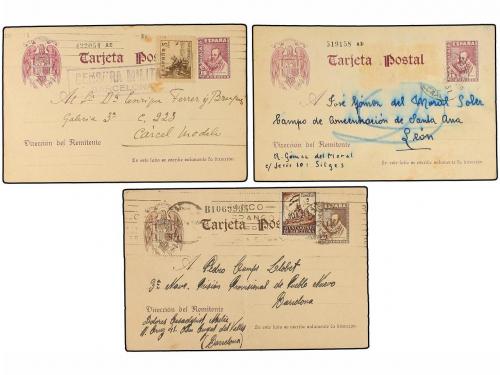 422051 AE
Tarjeta Postal
CENSURA MILITAR
ESPAÑA
Al Sr. Dn. Enrique Ferrer y
Galería 3ª C. 223
Cárcel Modelo
Dirección del Remitente
En este lado se escribe solamente la dirección.
519158 AD
Tarjeta Postal
ESPAÑA
A José Gómez del Moral Soler
Campo de Concentración de Santa Ana
León
Dirección del Remitente
R. Gómez del Moral
c/ Jesús 10: Sitges
En este lado se escribe solamente la dirección.
Tarjeta Postal
A Pedro Camps Llobet
3ª Nave. Prisión Provisional de Pueblo Nuevo
Barcelona
Dirección del Remitente
Dolores
(Barcelona)
En este lado se escribe solamente la dirección.